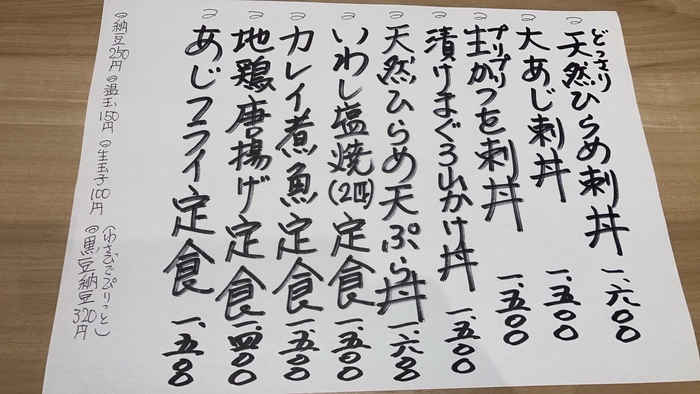 どっさり
天然ひらめ刺丼 一、六〇〇
大あじ刺丼 一、五〇〇
プリプリ
生かつを刺丼 一、五〇〇
漬けまぐろ山かけ丼 一、五〇〇
天然ひらめ天ぷら丼 一、六〇〇
いわし塩焼(2匹)定食 一、五〇〇
カレイ煮魚定食 一、五〇〇
地鶏唐揚げ定食 一、四〇〇
あじフライ定食 一、五〇〇
納豆250円 温玉150円 生玉子100円
(わさびでぴりっと)
黒豆納豆320円